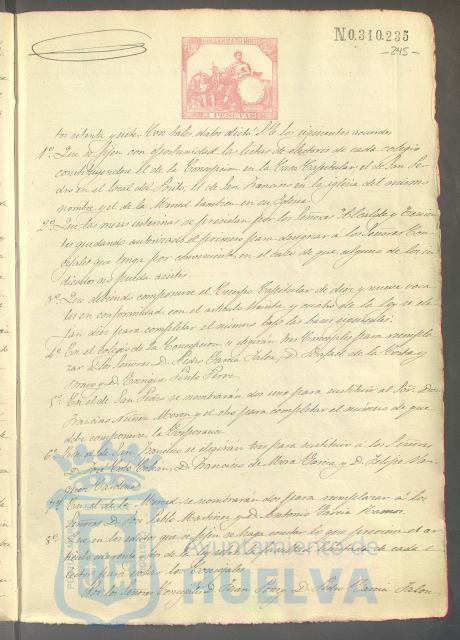 N.0.310.235
-245-
2 PESETAS
tos setenta y siete. Con tales datos dictó S.E. los siguientes acuerdos
1º Que se fijen con oportunidad las listas de electores de cada colegio
constituyendose el de la Concepcion en la Casa Capitular, el de San Pe-
dro en el local del el de San Francisco en la iglesia del mismo
nombre y el de la Merced tambien en su Iglesia.
2º Que las mesas interinas se presidan por los Señores Alcalde y Tenien-
tes quedando autorizado el primero para designar a los Señores Con-
cejales que tenga por conveniente en el caso de que alguno de los in-
dicados no pueda asistir.
3º Que debiendo componerse el Cuerpo Capitular de diez y nueve voca-
les en conformidad con el articulo treinta y cuatro de la ley se eli-
jan diez para completar el numero bajo las bases siguientes:
4º En el Colegio de la Concepcion se elijirán tres Concejales para reempla-
zar a los Señores D. Pedro Garcia Jalon, D. Rafael de la Corte y
Bravo y D. Enrique Pinto
5º En el de San Pedro se nombrarán dos uno para sustituir al Sor. Don
Francisco Nuñez Moron y el otro para completar el número de que
debe componerse la Corporacion.
6º En el de San Francisco se elijirán tres para sustituir a los Señores
D. José D. Francisco de Mora Garcia y D. Felipe
Cardenas
7º En el de la Merced se nombrarán dos para reemplazar a los
Señores D. José Pablo Martinez y D. Antonio Garcia Ramos.
8º Que en los edictos que se fijen se haga constar lo que previene el ar-
ticulo cuarenta y dos de la
lector para votar los Concejales
Por los Señores Concejales D. Juan D. Pedro Garcia Jalon
Ayuntamiento de
HUELVA